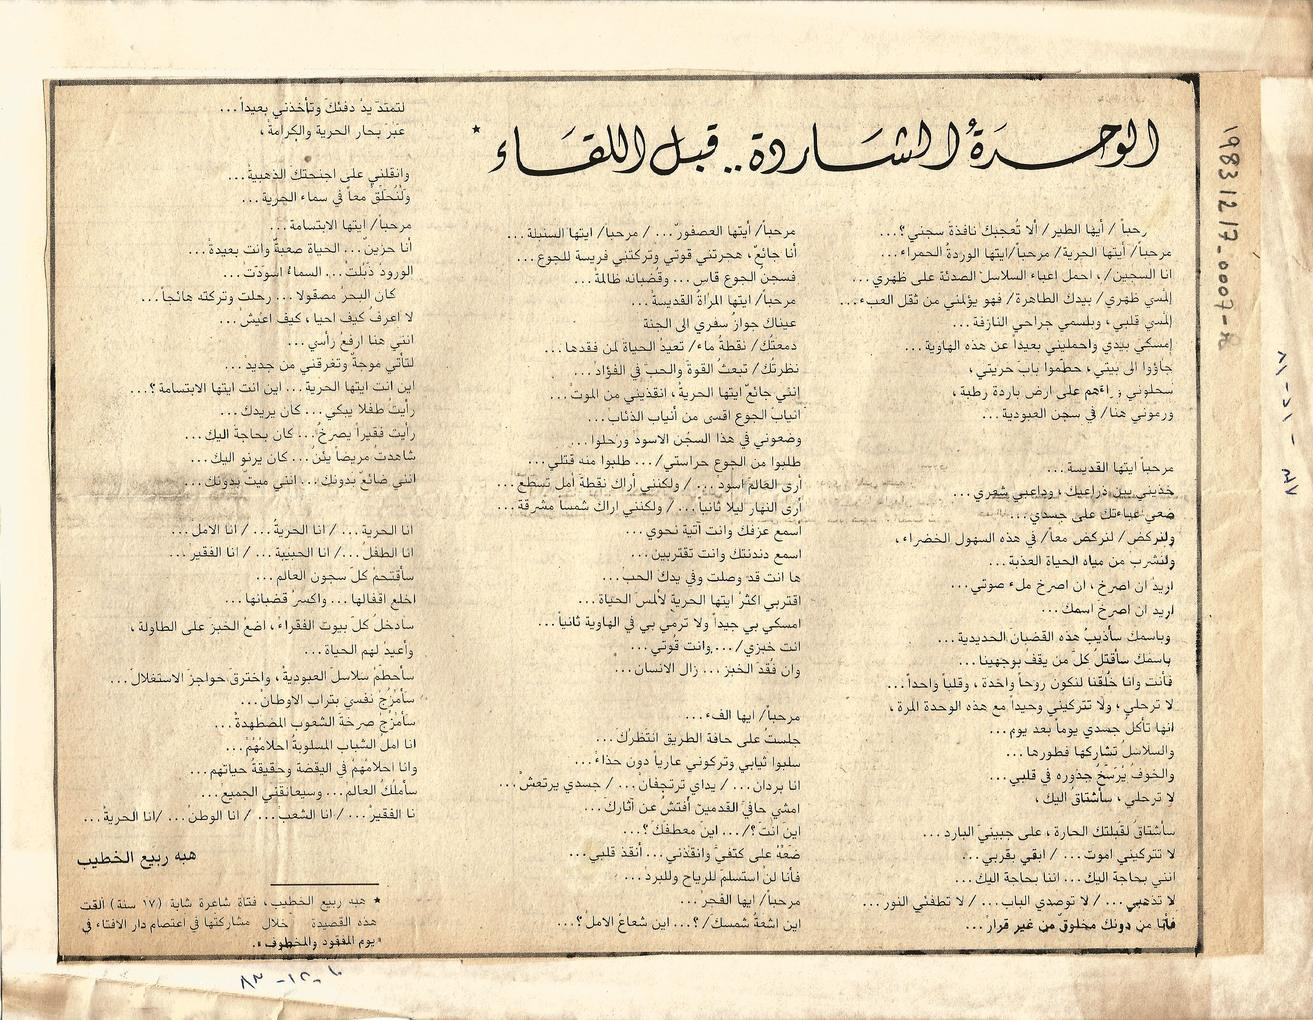 الوحدَةُ الشاردة.. قبل اللقَاء *
رحباً / أيها الطير/ ألا تُعجبكَ نافذة سجني؟...
مرحباً/ أيتها الحرية/ مرحباً/ايتها الوردةُ الحمراء...
انا السجين/، احمل اعباء السلاسل الصدئة على ظهري...
إلمسي ظهري/ بيدك الطاهرة/ فهو يؤلمني من ثقل العبء...
إلمسي قلبي، وبلسمي جراحي النازفة...
إمسكي بيدي واحمليني بعيداً عن هذه الهاوية...
جاؤوا الى بيتي، حطموا باب حريتي،
سحلوني وراءهم على ارض باردة رطبة،
ورموني هنا/ في سجن العبودية...
مرحباً ايتها القديسة...
خذيني بين ذراعيك، وداعبي شعري...
ضعي عباءتك على جسدي...
ولنركض/ لنركض معاً/ في هذه السهول الخضراء،
ولنشرب من مياه الحياة العذبة...
اريد ان اصرخ، ان اصرخ ملء صوتي...
اريد ان اصرخ اسمك...
وباسمك سأذيبُ هذه القضبان الحديدية...
باسمك سأقتلُ كلَّ من يقف بوجهينا...
فأنت وانا خُلقنا لنكون روحاً واحدة، وقلباً واحداً...
لا ترحلي، ولا تتركيني وحيداً مع هذه الوحدة المرة،
انها تأكلُ جسدي يوماً بعد يوم...
والسلاسل تشاركها فطورها...
والخوفُ يُرَسِّخُ جذوره في قلبي...
لا ترحلي، سأشتاقُ اليك،
سأشتاقُ لقبلتك الحارة، على جبيني البارد...
لا تتركيني اموت... / ابقي بقربي...
انني بحاجة اليك... اننا بحاجة اليك...
لا تذهبي... / لا توصدي الباب... / لا تطفئي النور...
فأنا من دونك مخلوقٌ من غير قرار...
مرحباً/ أيتها العصفورُ... / مرحبا/ ايتها السنبلة...
أنا جائعٌ، هجرتني قوتي وتركتني فريسة للجوع...
فسجنُ الجوع قاسٍ... وقضبانه ظالمة...
مرحباً/ ايتها المرأةُ القديسةُ...
عيناك جوازُ سفري الى الجنة
دمعتُك/ نقطةُ ماء/ تعيدُ الحياة لمن فقدها...
نظرتُك/ تبعثُ القوة والحب في الفؤاد...
إنني جائعٌ ايتها الحريةُ، انقذيني من الموت...
انياب الجوع اقسى من أنياب الذئاب...
وضعوني في هذا السجن الاسود ورحلوا...
طلبوا من الجوع حراستي/... طلبوا منه قتلي...
أرى العالم اسود... / ولكنني أراك نقطة أمل تسطع...
أرى النهار ليلاً ثانياً... / ولكنني اراك شمساً مشرقة...
اسمع عزفك وانت آتية نحوي...
اسمع دندنتك وانت تقتربين...
ها انت قد وصلت وفي يدك الحب...
اقتربي اكثرَ ايتها الحرية لألمسَ الحياة...
امسكي بي جيداً ولا ترمي بي في الهاوية ثانياً...
انت خبزي/... وانت قُوتي...
وان فُقدَ الخبز... زال الانسان...
مرحباً/ ايها الفء...
جلستُ على حافة الطريق انتظرُك...
سلبوا ثيابي وتركوني عارياً دون حذاء...
انا بردان... / يداي ترتجفان... / جسدي يرتعش...
امشي حافيَ القدمين أفتش عن آثارك...
اين انت؟/... اين معطفكَ؟...
ضَعْهُ على كتفيَّ وانقذني... أنقذ قلبي...
فأنا لن استسلم للرياح وللبرد...
مرحباً/ ايها الفجر...
اين اشعةُ شمسك/؟... اين شعاعُ الامل؟...
لتمتدَّ يدُ دفئكَ وتأخذني بعيداً...
عَبْرَ بحار الحرية والكرامة،
وانقلني على اجنحتكَ الذهبية...
ولْنُحَلِّقْ معاً في سماء الحرية...
مرحباً/ ايتها الابتسامة...
أنا حزينٌ... الحياة صعبةٌ وانت بعيدةٌ...
الورودُ ذَبُلَتْ... السماءُ اسودّت...
كان البحر مصقولا... رحلت وتركته هائجاً...
لا اعرفُ كيف احيا، كيف اعيش...
انني هنا ارفع رأسي...
لتأتي موجةٌ وتغرقني من جديد...
اين انت ايتها الحرية... اين انت ايتها الابتسامة؟...
رأيتُ طفلا يبكي... كان يريدك...
رأيت فقيراً يصرخُ... كان بحاجة اليك...
شاهدتُ مريضاً يئن... كان يرنو اليك...
انني ضائعٌ بدونك... انني ميتٌ بدونك...
انا الحرية... / انا الحريةُ... / انا الامل...
انا الطفلُ.../ انا الحبيبة... / انا الفقير...
سأقتحمُ كلَّ سجون العالم...
اخلع اقفالها... واكسرُ قضبانها...
سادخل كلَّ بيوت الفقراء، اضعُ الخبز على الطاولة،
وأعيدُ لهم الحياة...
سأحطمُ سلاسل العبودية، واخترق حواجز الاستغلال...
سأمْزُجُ نفسي بتراب الاوطان...
سأمْزُجُ صرخة الشعوب المضطهدة...
انا املُ الشباب المسلوبةُ احلامُهُمْ...
وانا احلامُهُمْ في اليقضة وحقيقةُ حياتهم...
سأملكُ العالم... وسيعانقني الجميع...
نا الفقير... /انا الشعب... / انا الوطن... /انا الحرية...
هبه ربيع الخطيب
* هبه ربيع الخطيب، فتاة شاعرة شابة (١٧ سنة) ألقت
هذه القصيدة خلال مشاركتها في اعتصام دار الافتاء في
«يوم المفقود والمخطوف».
19831217_0007-R